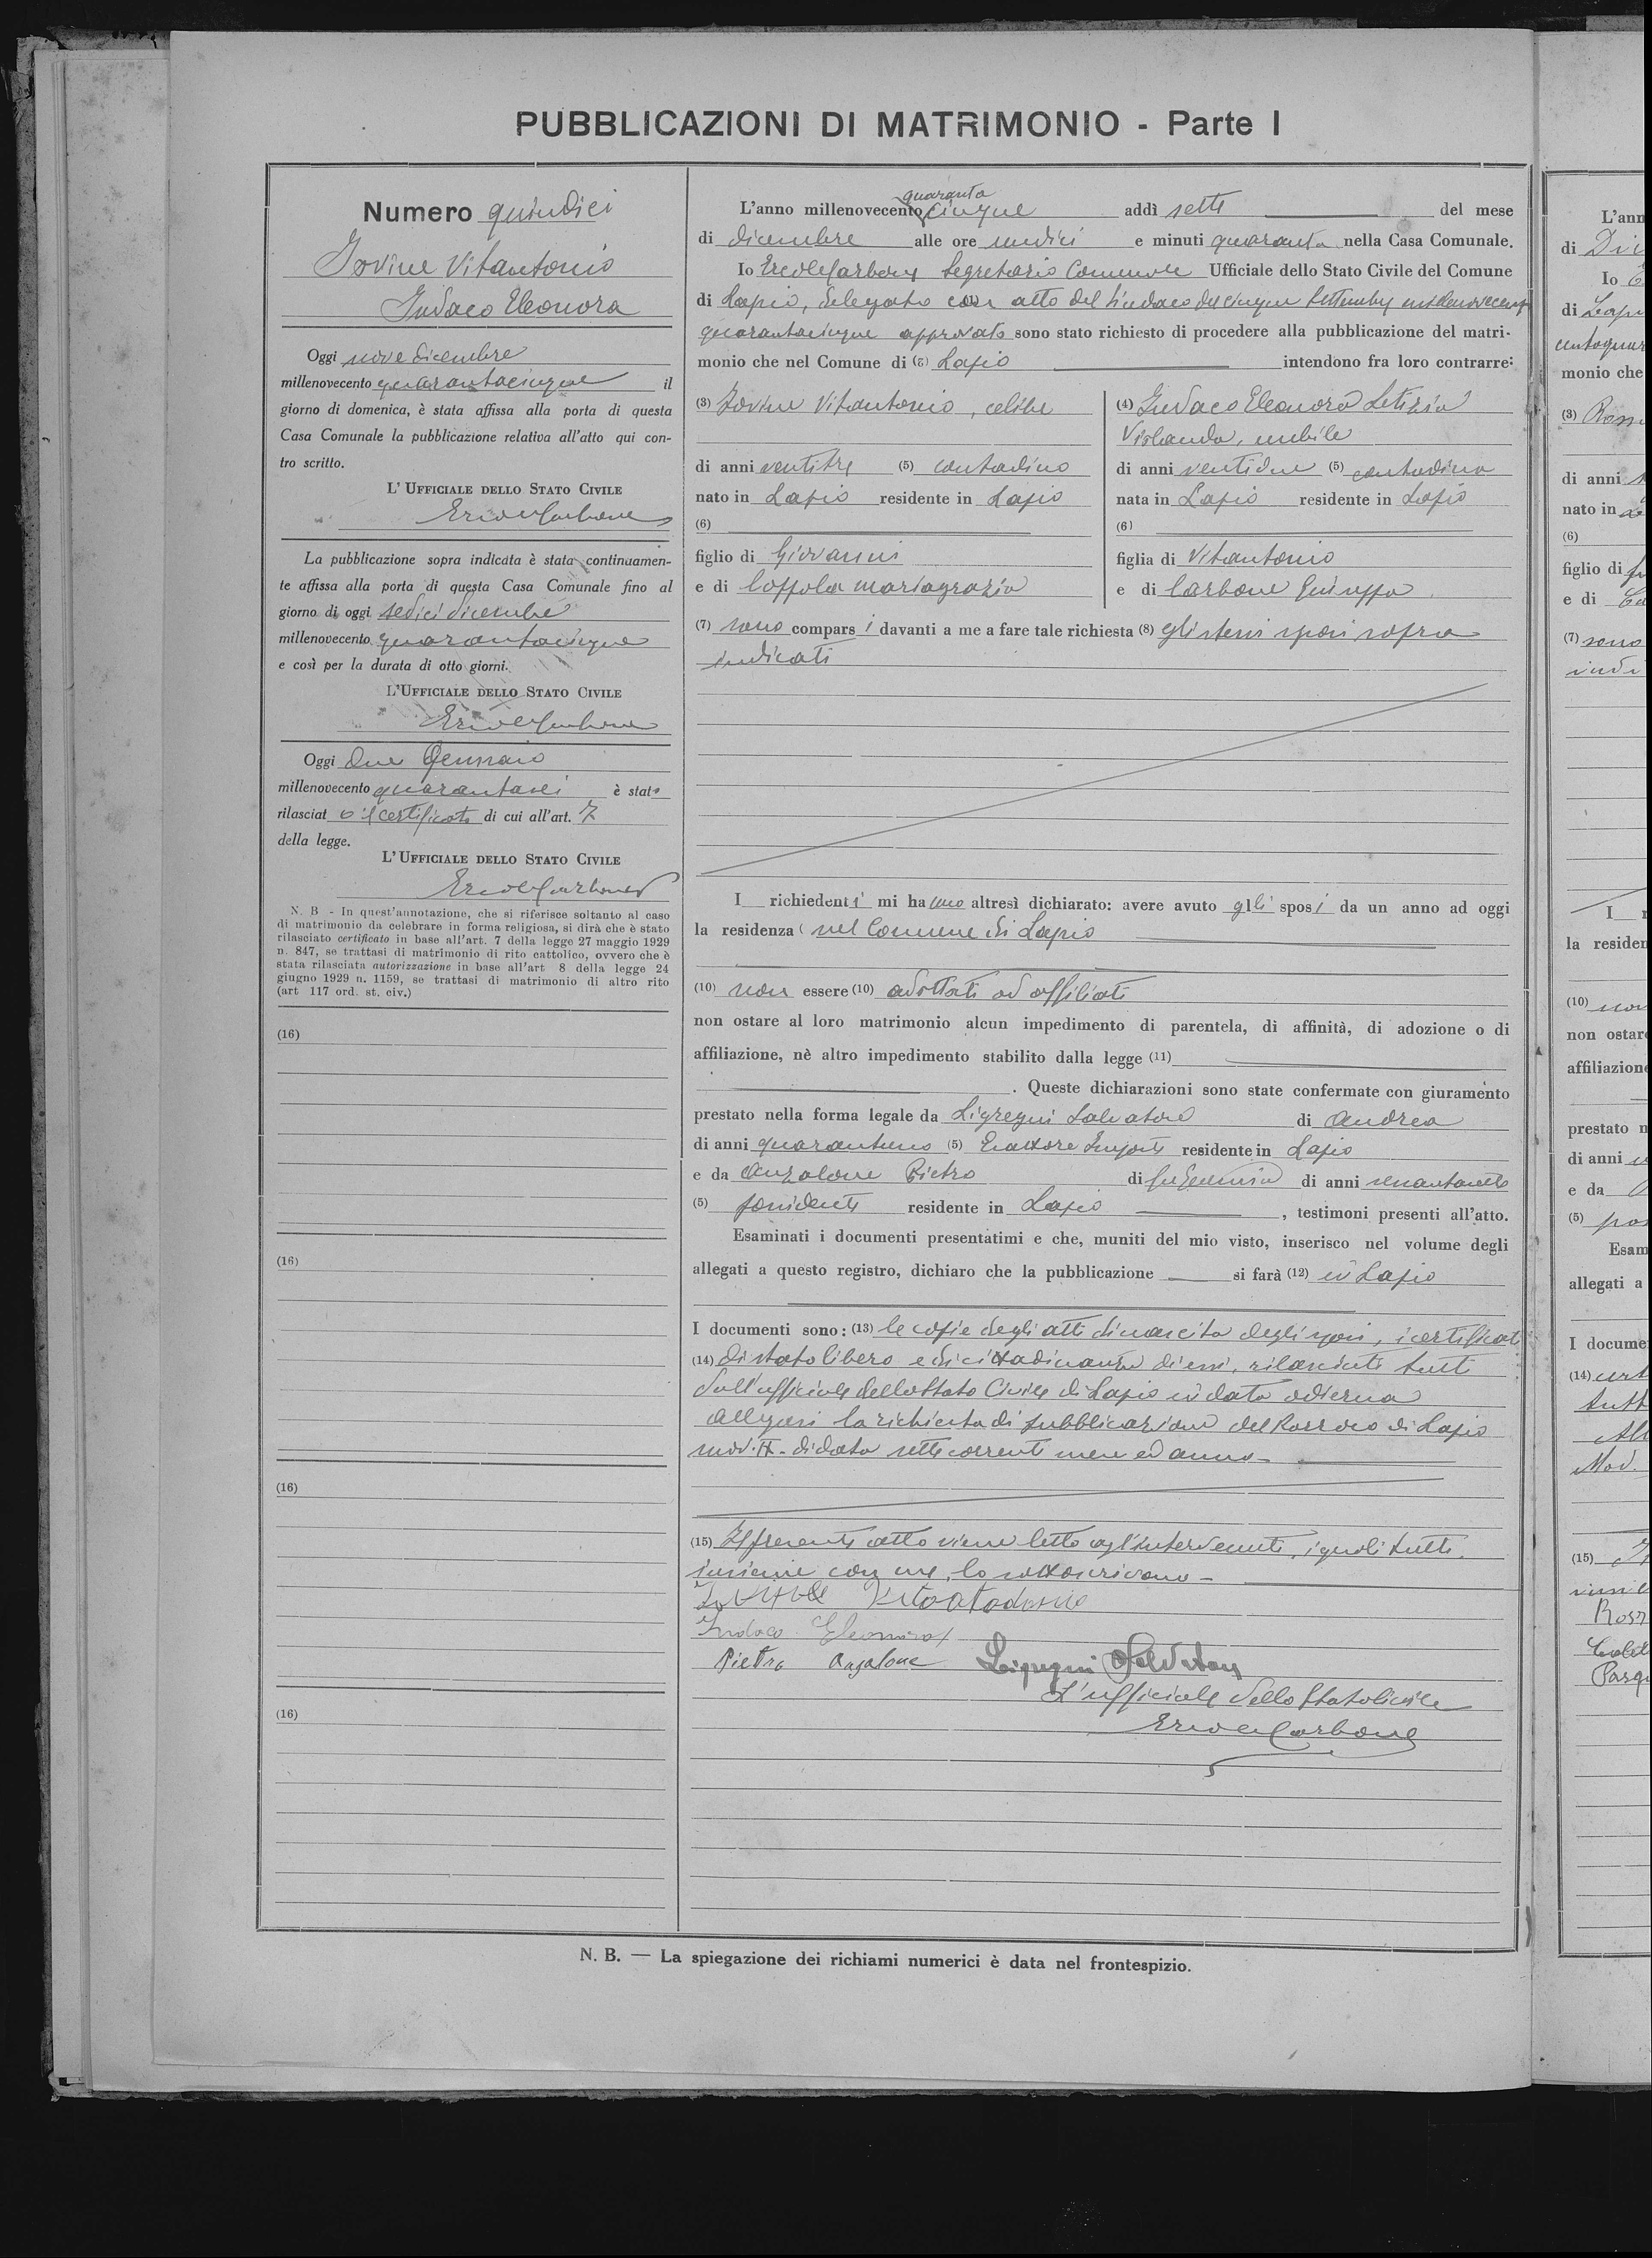 PUBBLICAZIONI DI MATRIMONIO - Parte I
Numero quindici
Iovine Vitantonio
Indaco Eleonora
Oggi nove dicembre
millenovecento quarantacinque il
giorno di domenica, è stata affissa alla porta di questa
Casa Comunale la pubblicazione relativa all'atto qui con-
tro scritto.
L'UFFICIALE DELLO STATO CIVILE
Ercole Carbone
La pubblicazione sopra indicata è stata continuamen-
te affissa alla porta di questa Casa Comunale fino al
giorno di oggi sedici dicembre
millenovecento quarantacinque
e così per la durata di otto giorni.
L'UFFICIALE DELLO STATO CIVILE
Ercole Carbone
Oggi due Gennaio
millenovecento quarantasei è stato
rilasciat o il certificato di cui all'art. 7
della legge.
L'UFFICIALE DELLO STATO CIVILE
Ercole Carbone
N. B - In quest'annotazione, che si riferisce soltanto al caso
di matrimonio da celebrare in forma religiosa, si dirà che è stato
rilasciato certificato in base all'art. 7 della legge 27 maggio 1929
n. 847, se trattasi di matrimonio di rito cattolico, ovvero che è
stata rilasciata autorizzazione in base all'art 8 della legge 24
giugno 1929 n. 1159, se trattasi di matrimonio di altro rito
(art 117 ord. st. civ.)
(16)
(16)
(16)
(16)
quaranta
L'anno millenovecento cinque addì sette del mese
di dicembre alle ore undici e minuti quaranta nella Casa Comunale.
Io Ercole Carbone Segretario Comunale Ufficiale dello Stato Civile del Comune
di Lapio, delegato con atto del Sindaco del cinque Settembre millenovecento
quarantacinque approvato sono stato richiesto di procedere alla pubblicazione del matri-
monio che nel Comune di (2) Lapio intendono fra loro contrarre:
(3) Iovine Vitantonio, celibe
di anni ventitre (5) contadino
nato in Lapio residente in Lapio
(6)
figlio di Giovanni
e di Coppola Mariagrazia
(4) Indaco Eleonora Letizia
Violanda, nubile
di anni ventidue (5) contadina
nata in Lapio residente in Lapio
(6)
figlia di Vitantonio
e di Carbone Giuseppa
(7) sono compars i davanti a me a fare tale richiesta (8) gli stessi sposi sopra
indicati
I richiedenti mi hanno altresì dichiarato: avere avuto gli sposi da un anno ad oggi
la residenza nel Comune di Lapio
(10) non essere (10) adottati od affiliati
non ostare al loro matrimonio alcun impedimento di parentela, di affinità, di adozione o di
affiliazione, nè altro impedimento stabilito dalla legge (11)
. Queste dichiarazioni sono state confermate con giuramento
prestato nella forma legale da Ligregni Salvatore di Andrea
di anni quarantuno (5) Esattore Imposte residente in Lapio
e da Anzalone Pietro di fu Geremia di anni
(5) possidente residente in Lapio , testimoni presenti all'atto.
Esaminati i documenti presentatimi e che, muniti del mio visto, inserisco nel volume degli
allegati a questo registro, dichiaro che la pubblicazione si farà (12) in Lapio
I documenti sono: (13) le copie degli atti di nascita degli sposi, i certificati
(14) di stato libero e di cittadinanza di essi, rilasciati tutti
dall'ufficiale dello Stato Civile di Lapio in data odierna
Allegasi la richiesta di pubblicazione del Parroco di Lapio
mod. II - di data sette corrente mese ed anno -
(15) Il presente atto viene letto agl'intervenuti, i quali tutti
insieme con me, lo sottoscrivono -
Iovine
Indaco Eleonora
Pietro Anzalone Ligregni Salvatore
L'ufficiale dello Stato Civile
Ercole Carbone
N. B. — La spiegazione dei richiami numerici è data nel frontespizio.
L'ann
di Dic
Io E
di Lapi
monio che
(3)
di anni
nato in
(6)
figlio di
e di
(7) sono
indi
I
la residen
(10) non
non ostare
affiliazione
prestato n
di anni
e da
(5) pos
Esam
allegati a
I docume
(14)
tutt
All
Mod.
(15)